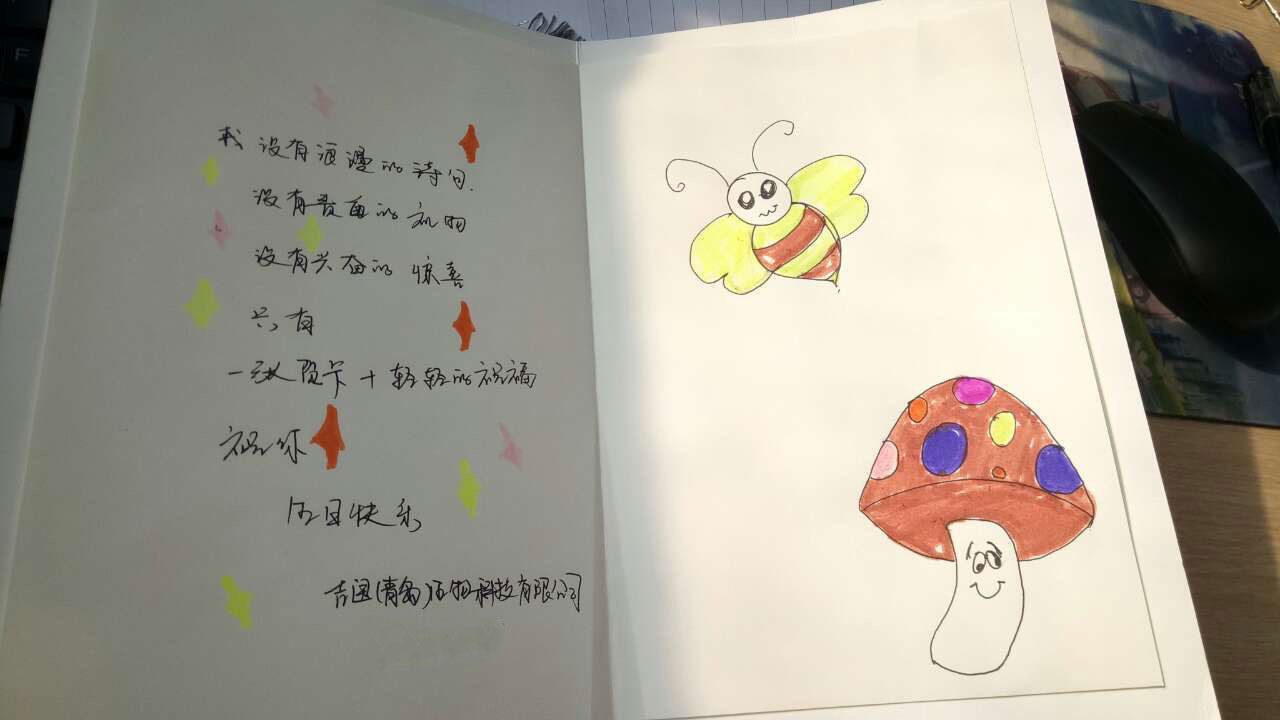 我没有浪漫的诗句.
没有贵重的礼物
没有兴奋的惊喜
只有
一张贺卡+轻轻的祝福
祝你
节日快乐
(青岛)生物科技有限公司
F